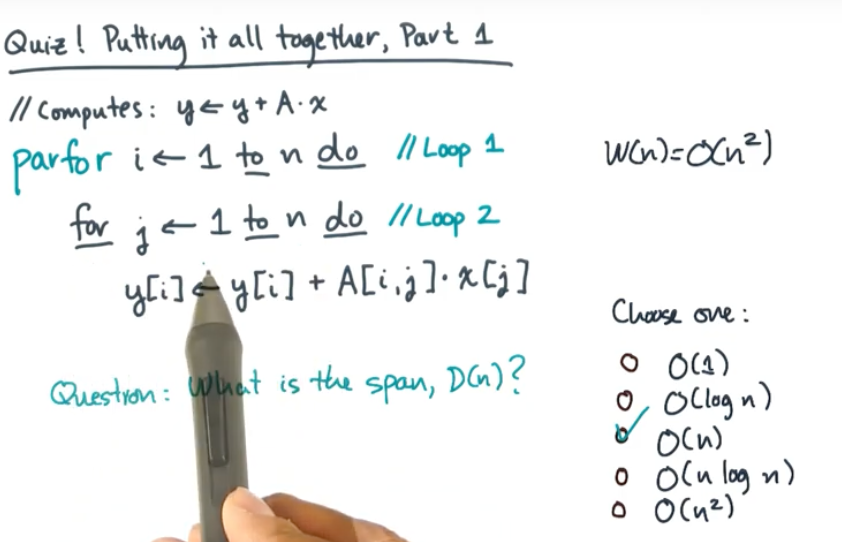 Quiz! Putting it all together, Part 1
// Computes: y ← y + A·x
parfor i ← 1 to n do // Loop 1
W(n)=O(n²)
for j ← 1 to n do // Loop 2
y[i] ← y[i] + A[i,j]·x[j]
Question: What is the span, D(n)?
Choose one:
O(1)
O(log n)
O(n)
O(n log n)
O(n²)